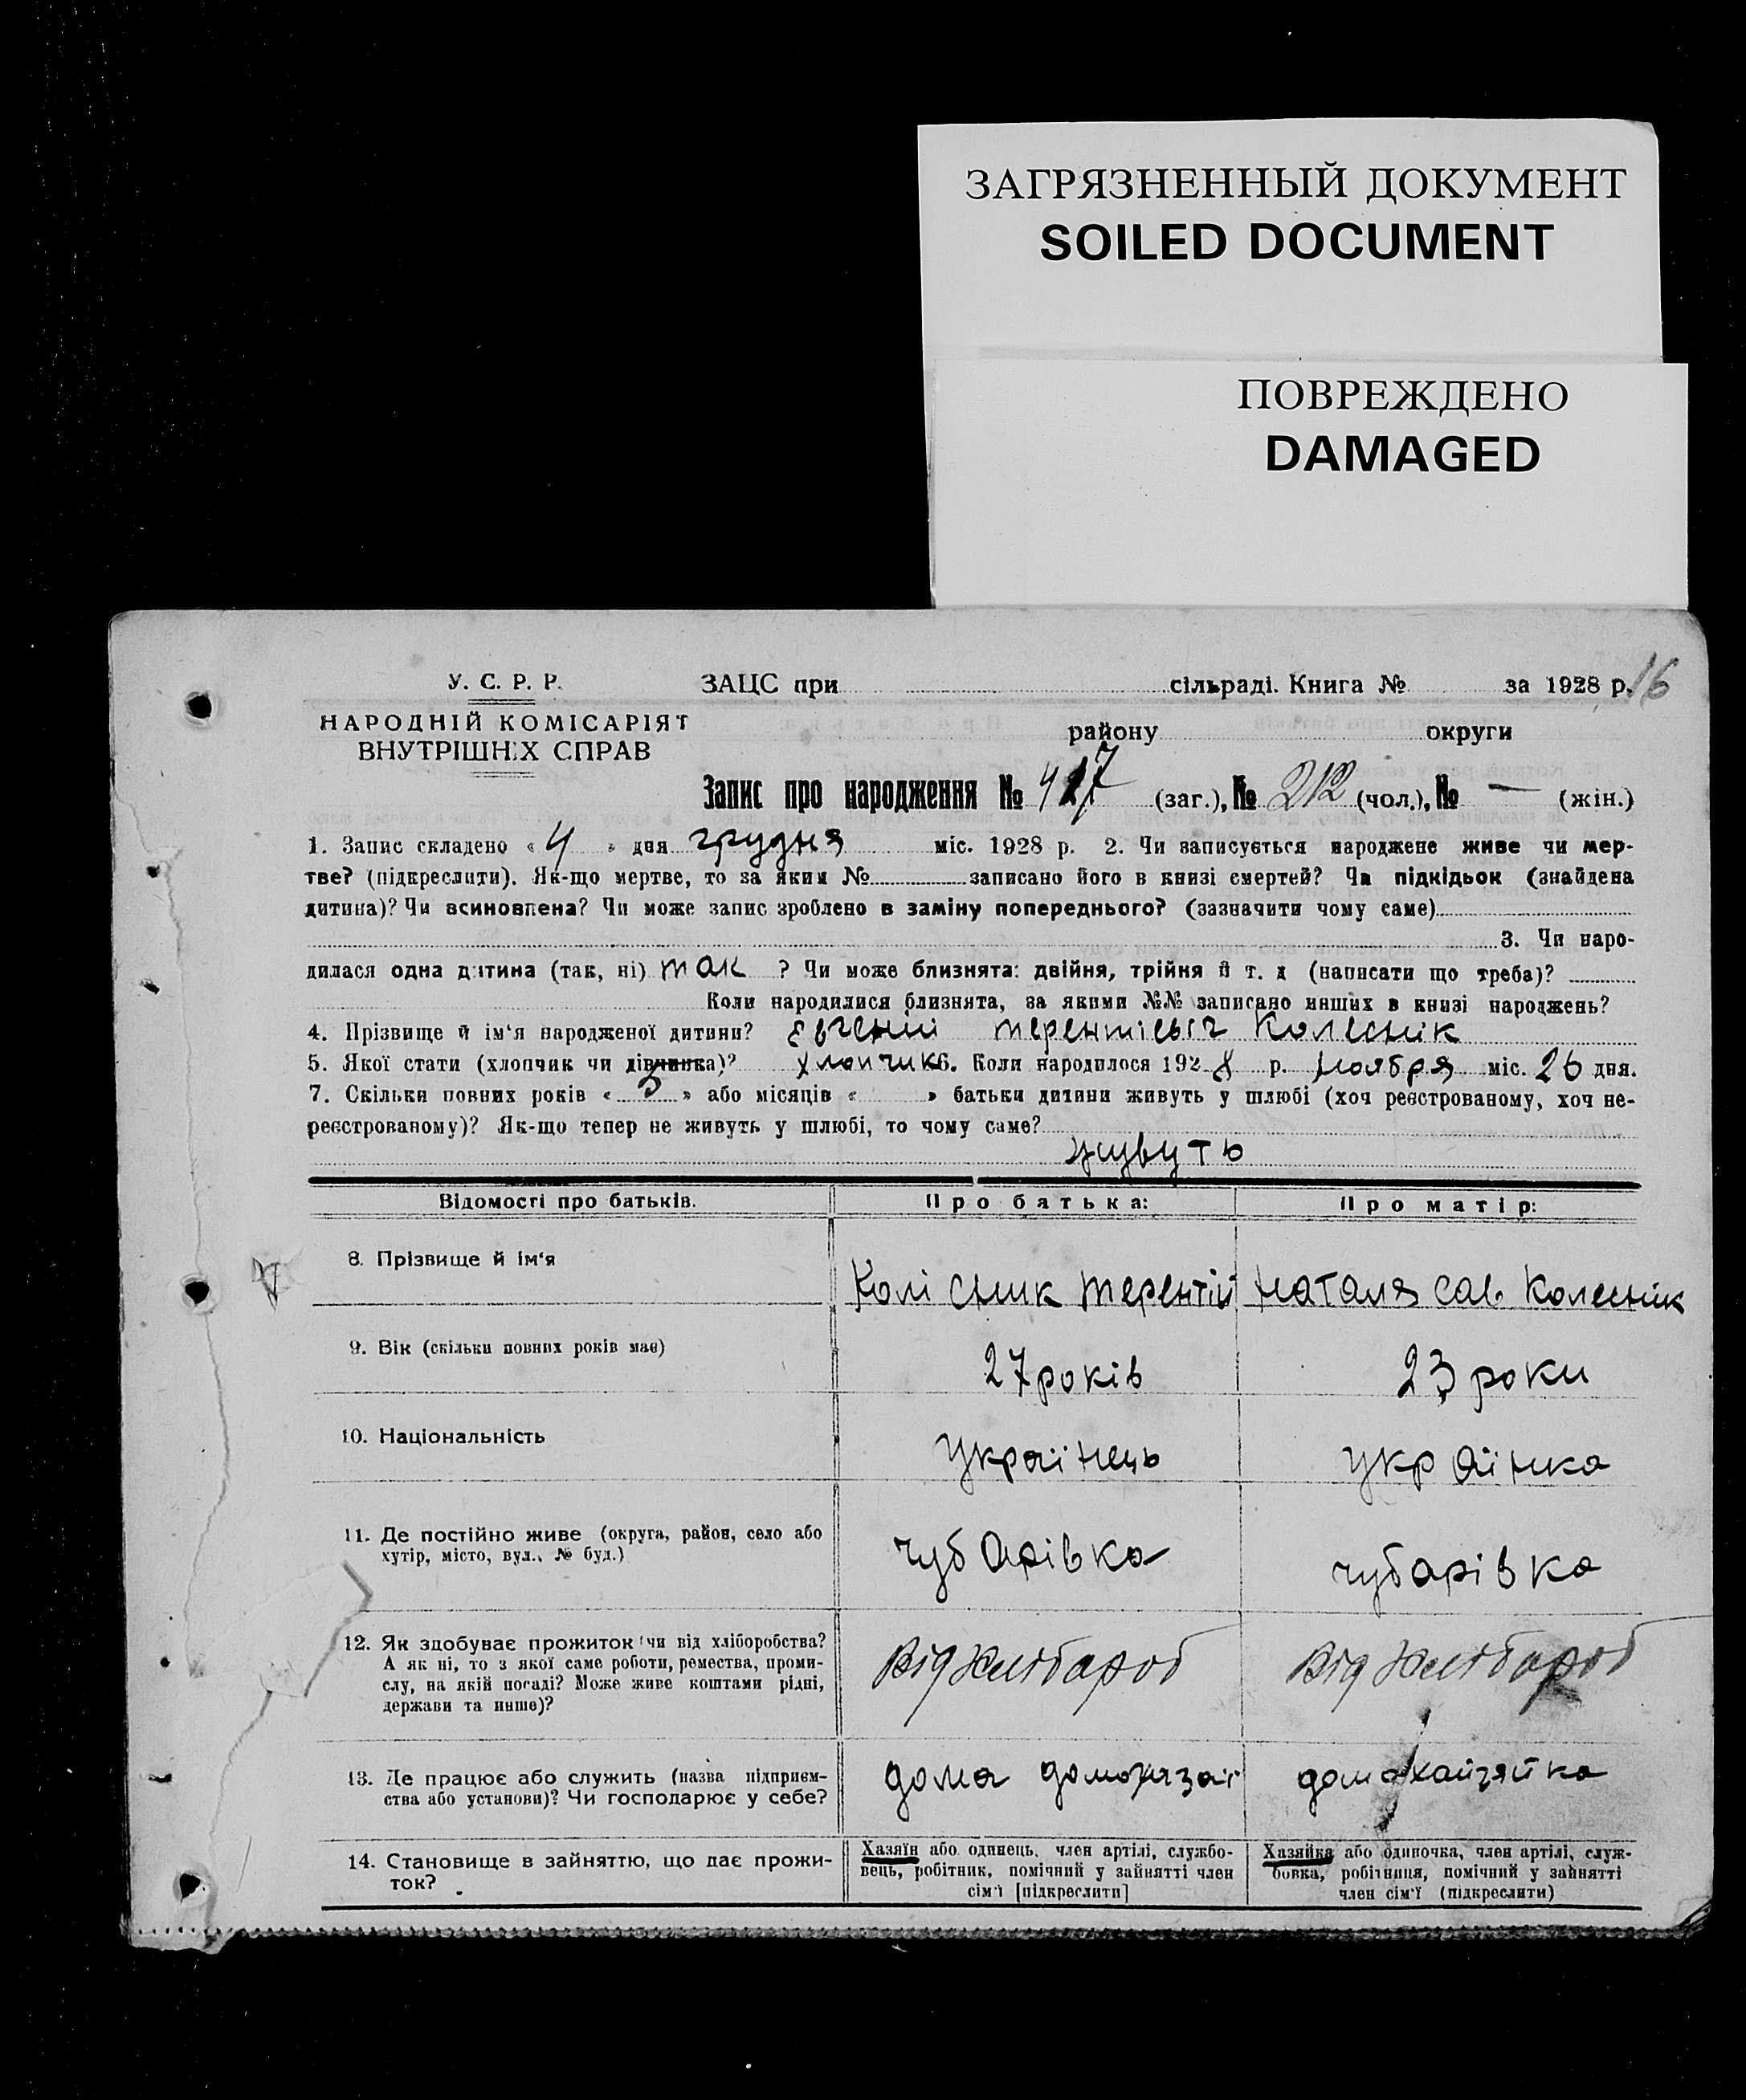 ЗАГРЯЗНЕННЫЙ ДОКУМЕНТ
SOILED DOCUMENT
ПОВРЕЖДЕНО
DAMAGED
У. С. Р. Р. ЗАЦС при сільраді. Книга № за 1928 р. 16
НАРОДНІЙ КОМІСАРІЯТ
ВНУТРІШНІХ СПРАВ
району округи
Запис про народження № 417 (заг.), № 212 (чол.), № — (жін.)
1. Запис складено « 4 » дня грудня міс. 1928 р. 2. Чи записується народжене живе чи мер-
тве? (підкреслити). Як-що мертве, то за яким № записано його в книзі смертей? Чи підкідьок (знайдена
дитина)? Чи всиновлена? Чи може запис зроблено в заміну попереднього? (зазначити чому саме)
3. Чи наро-
дилася одна дитина (так, ні) так ? Чи може близнята: двійня, трійня й т. д (написати що треба)?
Коли народилися близнята, за якими №№ записано инших в книзі народжень?
4. Прізвище й ім'я народженої дитини? Евгений терентіевіч Колеснік
5. Якої статі (хлопчик чи дівчинка)? хлопчик 6. Коли народилося 1928 р. ноября міс. 26 дня.
7. Скільки повних років « 3 » або місяців « » батьки дитини живуть у шлюбі (хоч реєстрованому, хоч не-
реєстрованому)? Як-що тепер не живуть у шлюбі, то чому саме?
живуть
Відомості про батьків. Про батька: Про матір:
8. Прізвище й ім'я
Колісник терентій Наталя Сав. Колеснік
9. Вік (скільки повних років має)
27 років 23 роки
10. Національність
Українець українка
11. Де постійно живе (округа, район, село або
хутір, місто, вул., № буд.)
чубарівка чубарівка
12. Як здобуває прожиток чи від хліборобства?
А як ні, то з якої саме роботи, ремества, проми-
слу, на якій посаді? Може живе коштами рідні,
держави та инше)?
Від хлібароб Від хлібароб
13. Де працює або служить (назва підприєм-
ства або установи)? Чи господарює у себе?
дома домохазаі домохайзяйка
14. Становище в зайняттю, що дає прожи-
ток?
Хазяїн або одинець, член артілі, службо-
вець, робітник, помічний у зайнятті член
сім'ї [підкреслити]
Хазяйка або одиночка, член артілі, служ-
бовка, робітниця, помічний у зайнятті
член сім'ї (підкреслити)